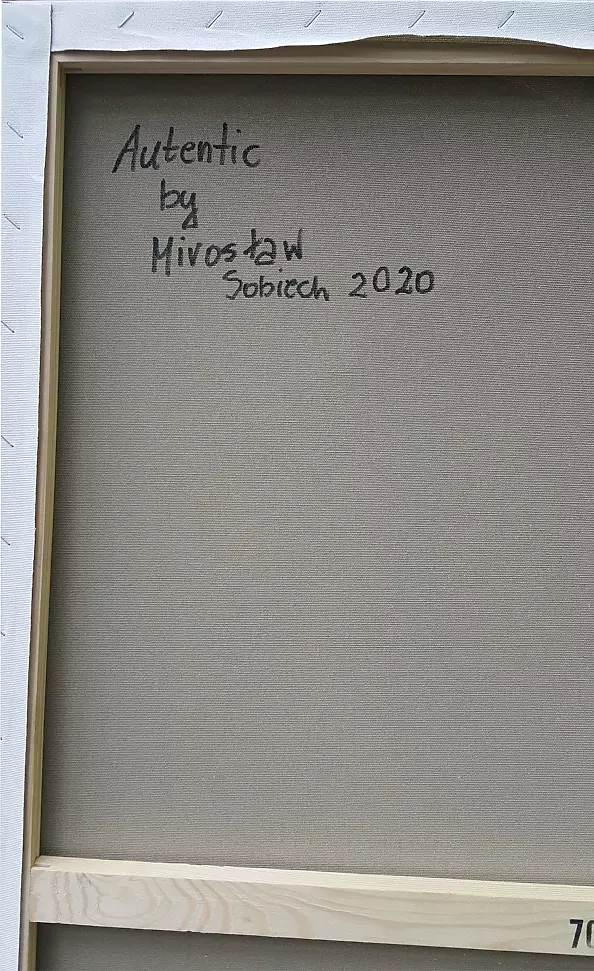 Autentic
by
Mirosław
Sobiech 2020
70